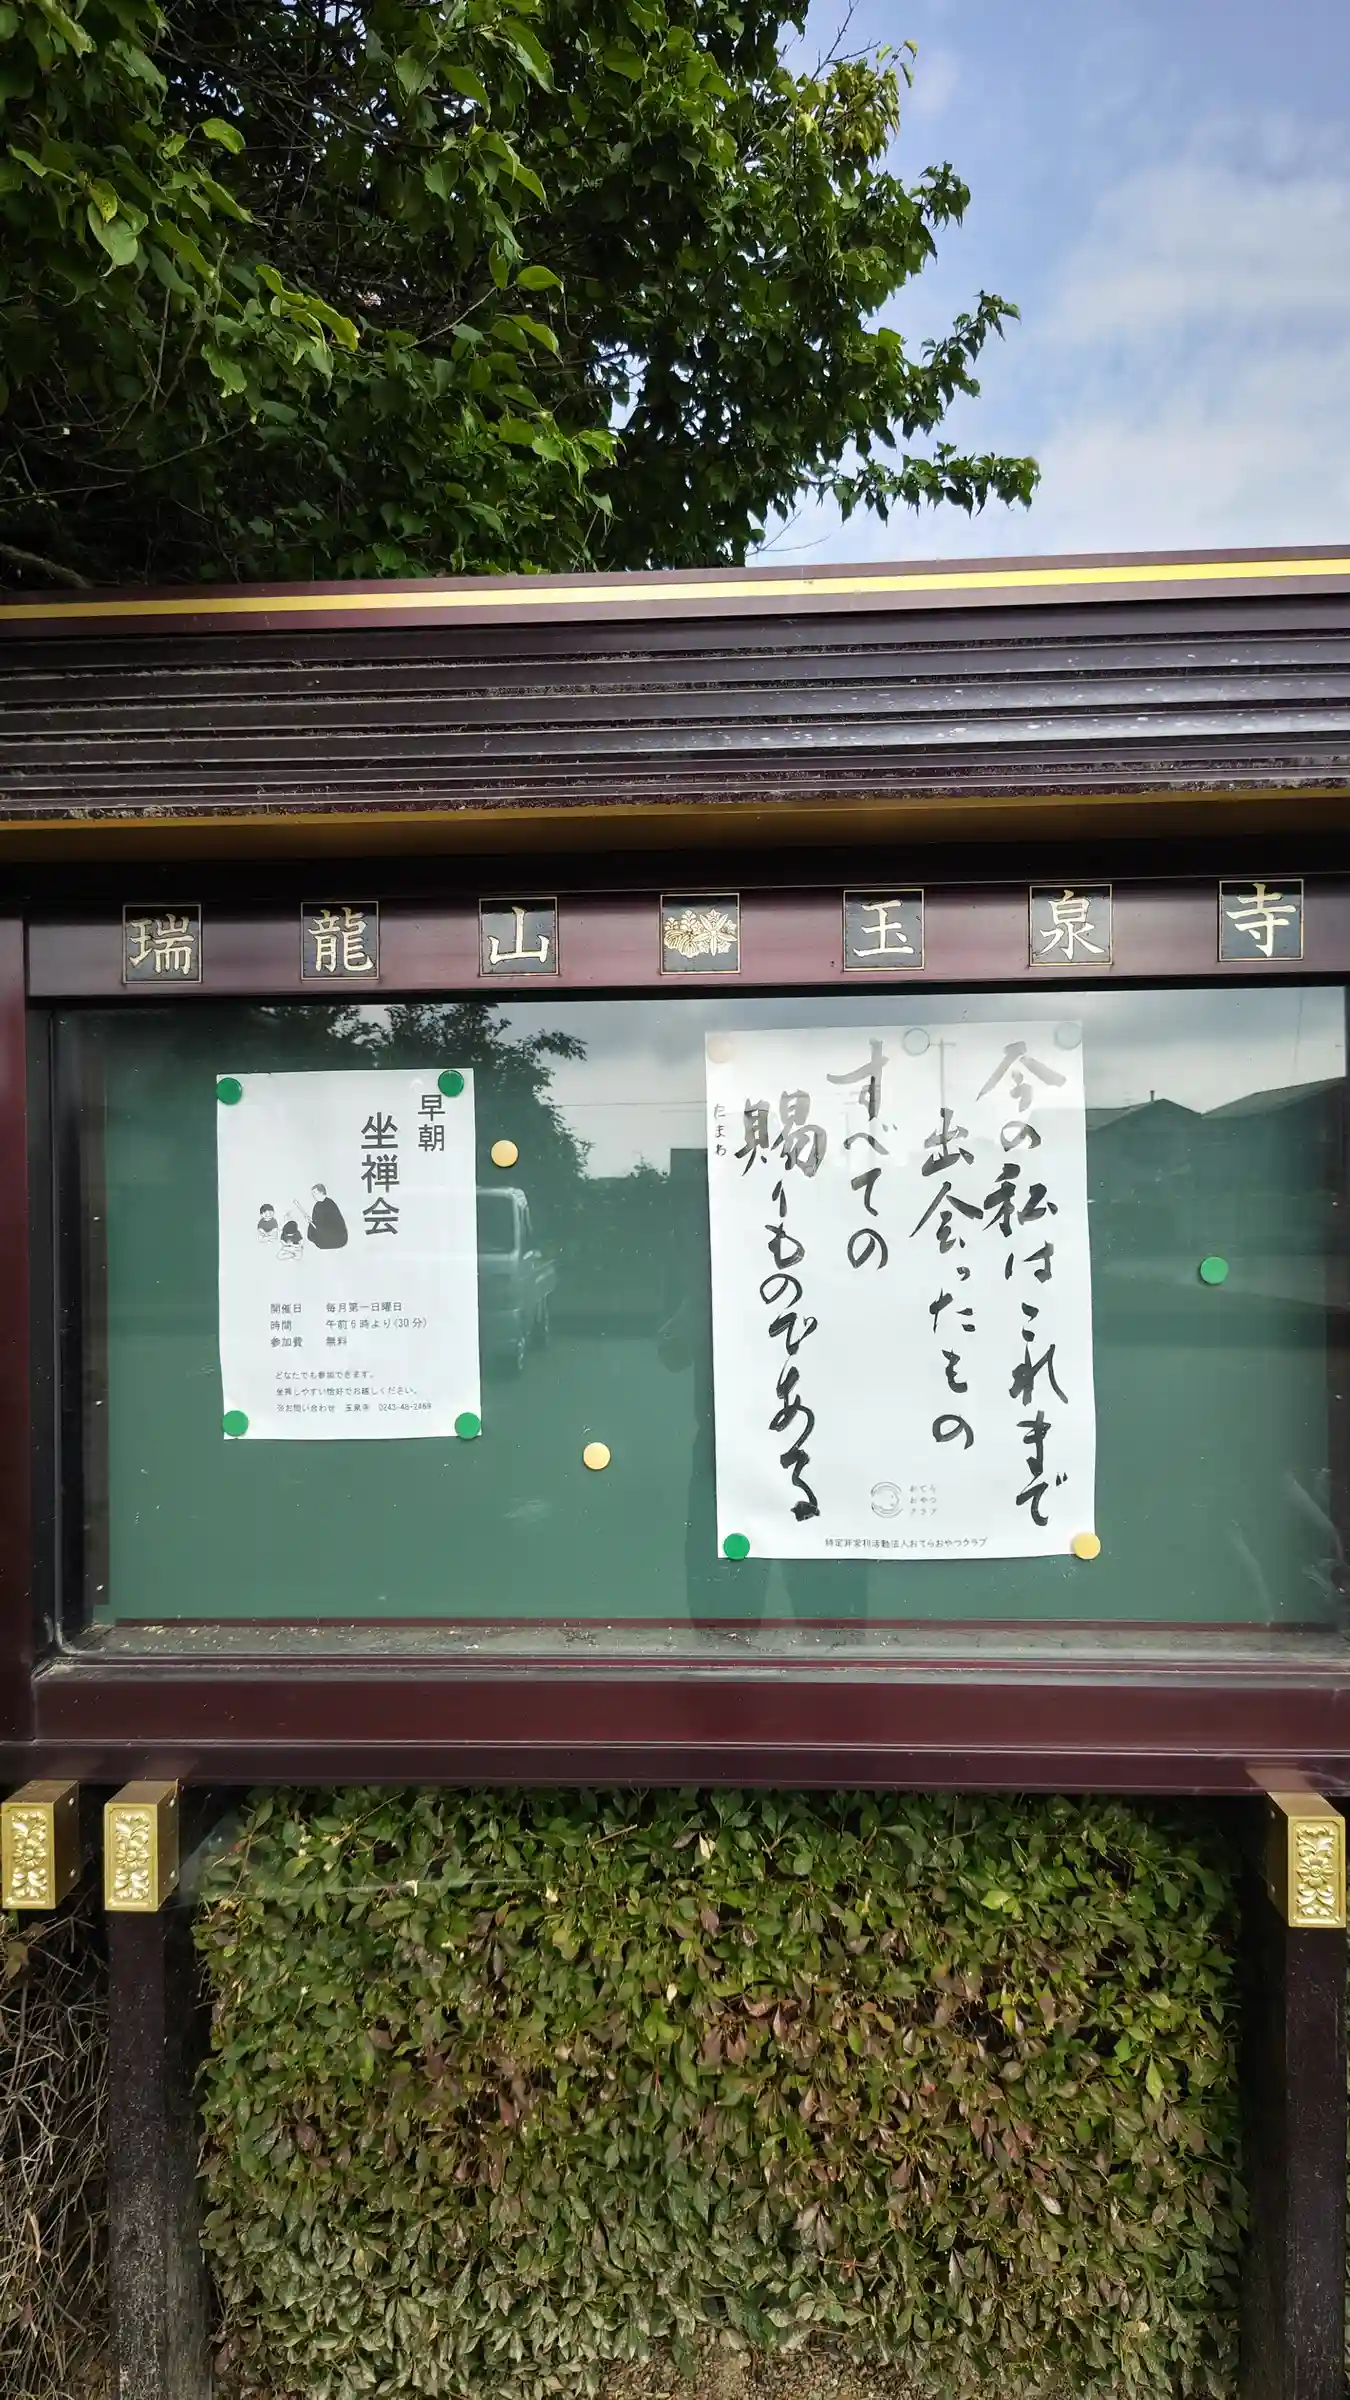 瑞龍山 玉泉寺
早朝
坐禅会
開催日 毎月第一日曜日
時間 午前6時より(30分)
参加費 無料
どなたでも参加できます。
坐禅しやすい恰好でお越しください。
※お問い合わせ 玉泉寺 0243-48-2469
今の私はこれまで
出会ったもの
すべての
賜りものである
たまわ
おてら
おやつ
クラブ
特定非営利活動法人おてらおやつクラブ